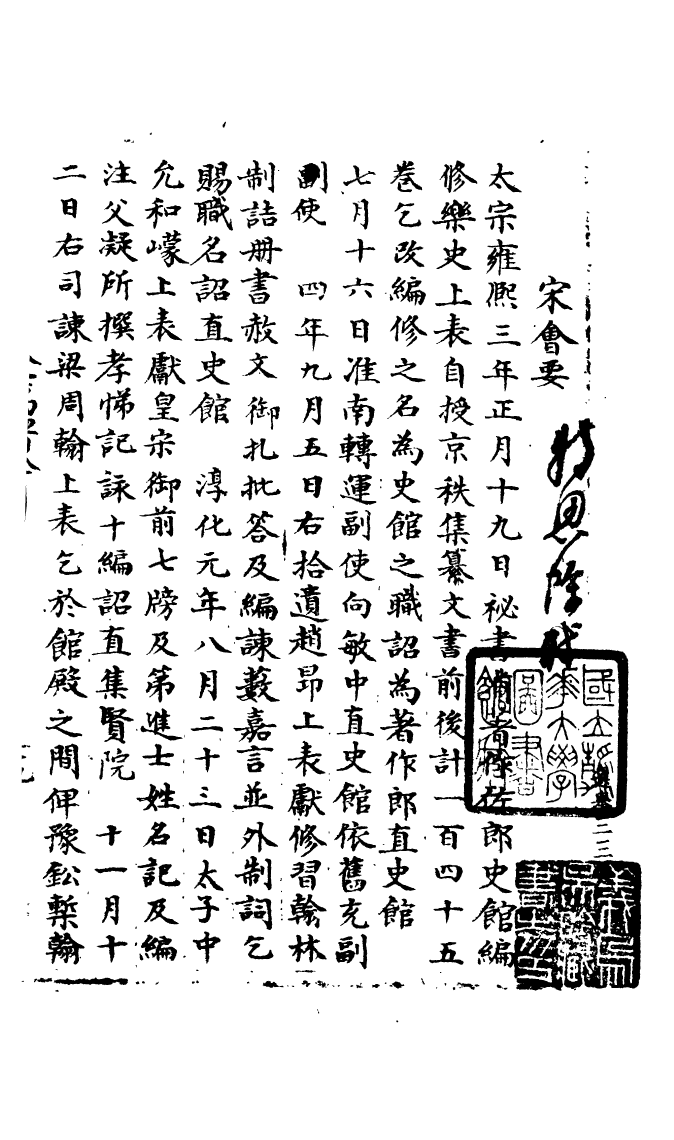 宋會要
特恩除職
太宗雍熙三年正月十九日祕書省著作佐郎史館編
修樂史上表自授京秩集纂文書前後計一百四十五
卷乞改編修之名為史館之職詔為著作郎直史館
七月十六日淮南轉運副使向敏中直史館依舊充副
副使 四年九月五日右拾遺趙昂上表獻修習翰林
制誥册書赦文御扎批答及編諫藪嘉言並外制詞乞
賜職名詔直史館 淳化元年八月二十三日太子中
允和㠓上表獻皇宗御前七牓及第進士姓名記及編
注父凝所撰孝悌記詠十編詔直集賢院 十一月十
二日右司諫梁周翰上表乞於館殿之間俾豫鈆槧翰